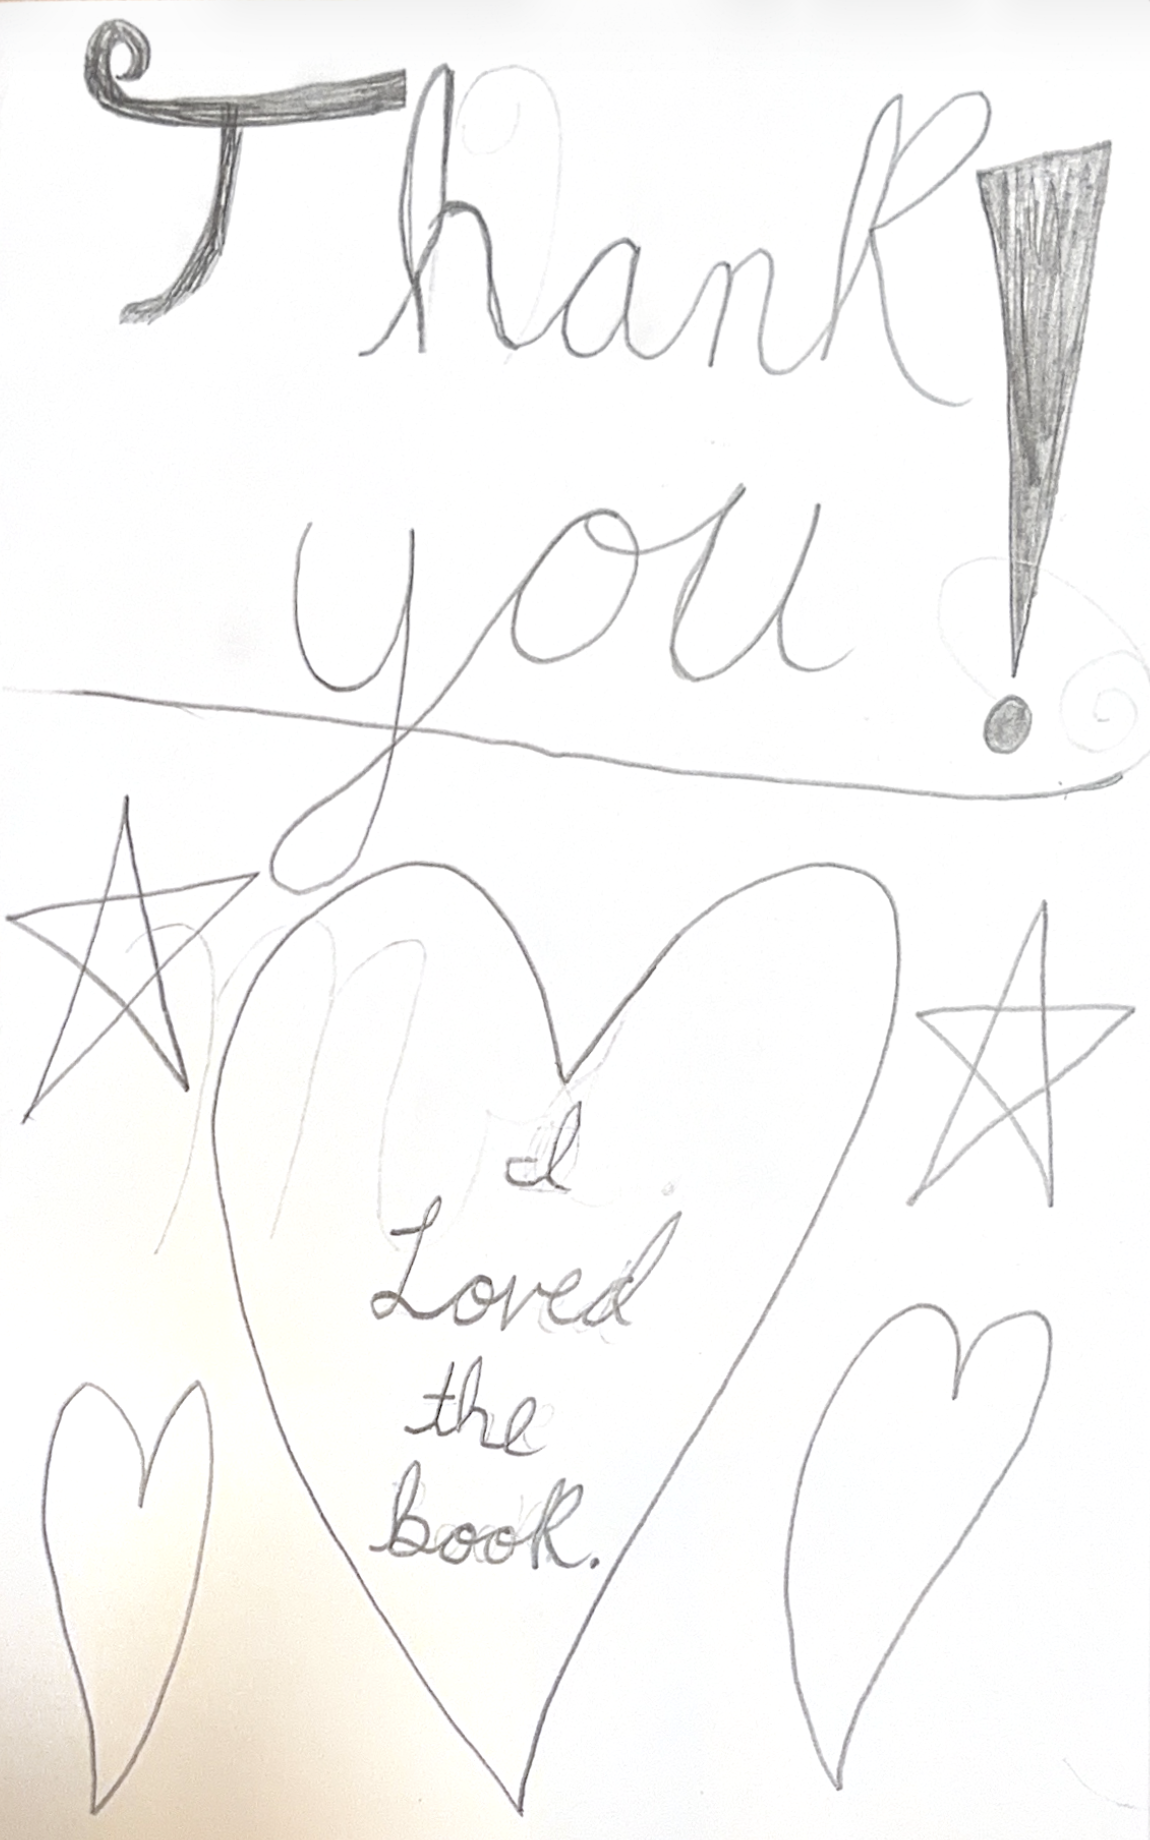 Thank!
you
I
Loved
the
book.